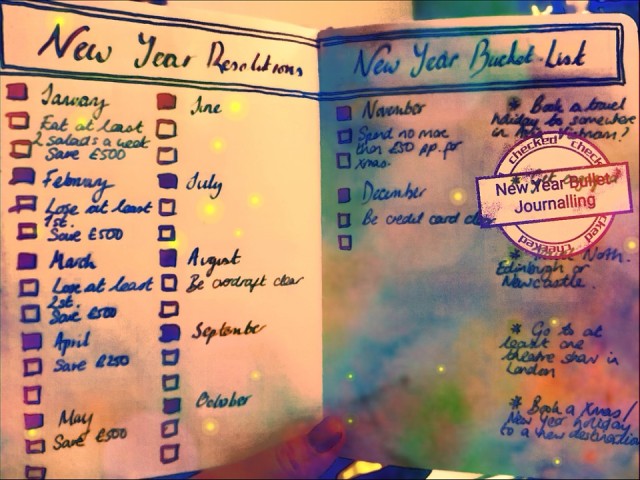 New Year Resolutions
January
Eat at least
2 salads a week
Save £500
February
Lose at least
1st.
Save £500
March
Lose at least
2st.
Save £500
April
Save £250
May
Save £500
June
July
August
Be overdraft clear
September
October
New Year Bucket List
November
Spend no more
than £50 pp. for
Xmas.
December
Be credit card clear
* Book a travel
holiday to somewhere
in Vietnam?
checked check
New Year Bullet
Journalling
North.
Edinburgh or
Newcastle.
* Go to at
least one
theatre show in
London
* Book a Xmas/
New Year holiday
to a new destination